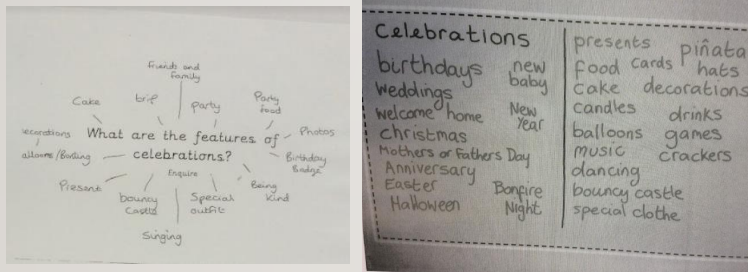 Friends and
family
Cake
trip
party
Party
food
Photos
What are the features of
celebrations?
Birthday
Badge
Enquire
Present
bouncy
Castle
Special
outfit
Being
Kind
Singing
Celebrations
birthdays
new
baby
weddings
welcome home
New
Year
christmas
Mothers or Fathers Day
Anniversary
Easter
Bonfire
Night
Halloween
presents
piñata
food cards hats
cake decorations
candles drinks
balloons games
music crackers
dancing
bouncy castle
special clothe